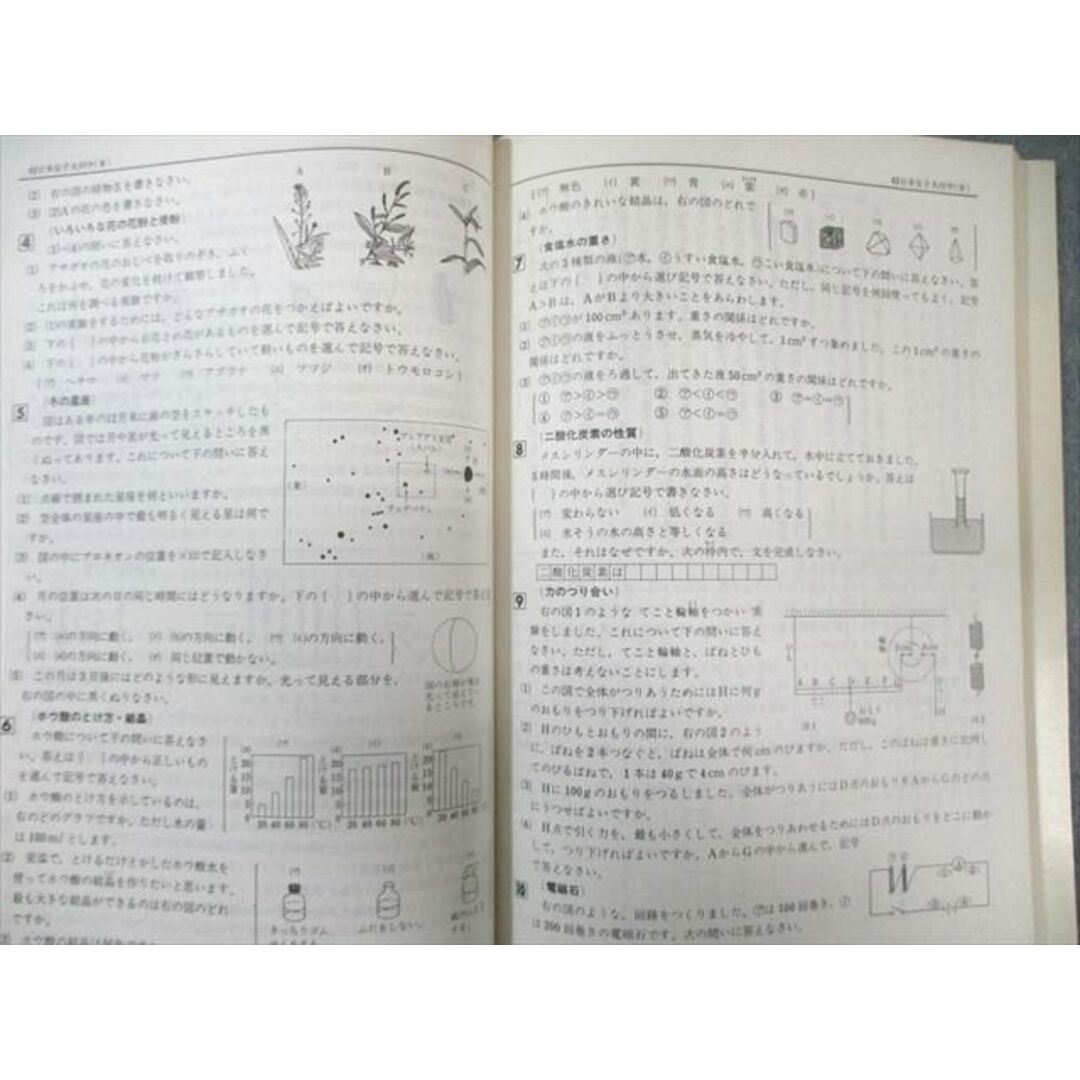 (2) 右の図の植物名を書きなさい。
(3) (2)Aの花の色を書きなさい。
A B C
4 (いろいろな花の花粉と受粉)
(1)~(4)の問いに答えなさい。
(1) アサガオの花のおしべを取りのぞき、ふく
ろをかぶせ、花の変化を続けて観察しました。
これは何を調べる実験ですか。
(2) (1)の実験をするためには、どんなアサガオの花をつかえばよいですか。
(3) 下の[ ]の中からお花とめ花があるものを選んで記号で答えなさい。
(4) 下の[ ]の中から花粉がさらさらしていて軽いものを選んで記号で答えなさい。
[(ア) ヘチマ (イ) マツ (ウ) アブラナ (エ) ツツジ (オ) トウモロコシ]
5 (冬の星座)
図はある年の
月末に南の空をスケッチしたも
のです。図では月や星が光って見えるところを黒
くぬってあります。これについて下の問いに答え
なさい。
(1) 点線で囲まれた星座を何といいますか。
(2) 空全体の星座の中で最も明るく見える星は何で
すか。
(3) 図の中にプロキオンの位置を×印で記入しなさ
い。
(東)
(南)
アルデバラン
(4) 月の位置は次の日の同じ時間にはどうなりますか。下の[ ]の中から選んで記号で答え
なさい。
[(ア) (a)の方向に動く。 (イ) (b)の方向に動く。 (ウ) (c)の方向に動く。
(エ) (d)の方向に動く。 (オ) 同じ位置で動かない。]
(5) この月は3日後にはどのような形に見えますか。光って見える部分を、
右の図の中に黒くぬりなさい。
6 (ホウ酸のとけ方・結晶)
ホウ酸について下の問いに答えなさ
い。答えは[ ]の中から正しいもの
を選んで記号で答えなさい。
(1) ホウ酸のとけ方を示しているのは、
右のどのグラフですか。ただし水の量
は100mlとします。
とける量
20 40 60 80 (℃)
20 40 60 80 (℃)
(2) 室温で、とけるだけとかしたホウ酸水を
使ってホウ酸の結晶を作りたいと思います。
最も大きな結晶ができるのは右の図のどれ
ですか。
ふたをしない。
[(ア) 無色 (イ) 黄 (ウ) 青 (エ) 紫 (オ) 赤]
(4) ホウ酸のきれいな結晶は、右の図のどれで
すか。
7 (食塩水の重さ)
次の3種類の液(㋐水、㋑うすい食塩水、㋒こい食塩水)について下の問いに答えなさい。答
えは下の[ ]の中から選び記号で答えなさい。ただし、同じ記号を何回使ってもよく、記号
A>Bは、AがBより大きいことをあらわします。
(1) ㋐㋑㋒が100cm³あります。重さの関係はどれですか。
(2) ㋐㋑㋒の液をふっとうさせ、蒸気を冷やして、1cm³ずつ集めました。この1cm³の重さの
関係はどれですか。
(3) ㋐㋑㋒の液をろ過して、出てきた液50cm³の重さの関係はどれですか。
[① ㋐>㋑>㋒ ② ㋐<㋑<㋒ ③ ㋐=㋑=㋒
④ ㋐>㋑=㋒ ⑤ ㋐<㋑=㋒]
8 (二酸化炭素の性質)
メスシリンダーの中に、二酸化炭素を半分入れて、水中に立てておきました。
5時間後、メスシリンダーの水面の高さはどうなっているでしょうか。答えは
[ ]の中から選び記号で書きなさい。
[(ア) 変わらない (イ) 低くなる (ウ) 高くなる
(エ) 水そうの水の高さと等しくなる]
また、それはなぜですか。次の枠内で、文を完成しなさい。
二酸化炭素は
9 (力のつり合い)
右の図1のような てこと輪軸をつかい 実
験をしました。これについて下の問いに答え
なさい。ただし、てこと輪軸と、ばねとひも
の重さは考えないことにします。
(1) この図で全体がつりあうためにはHに何g
のおもりをつり下げればよいですか。
A B C D E F G
H
図1
(2) Hのひもとおもりの間に、右の図2のよう
に、ばねを2本つなぐと、ばねは全体で何cmのびますか。ただし、このばねは重さに比例し
てのびるばねで、1本は40gで4cmのびます。
(3) Hに100gのおもりをつるしました。全体がつりあうにはD点のおもりをAからGのどの点
にうつせばよいですか。
(4) H点で引く力を、最も小さくして、全体をつりあわせるためにはD点のおもりをどこに動か
して、つり下げればよいですか。AからGの中から選んで、記号
で答えなさい。
10 (電磁石)
右の図のような、回路をつくりました。㋐は100回巻き、㋑
は200回巻きの電磁石です。次の問いに答えなさい。